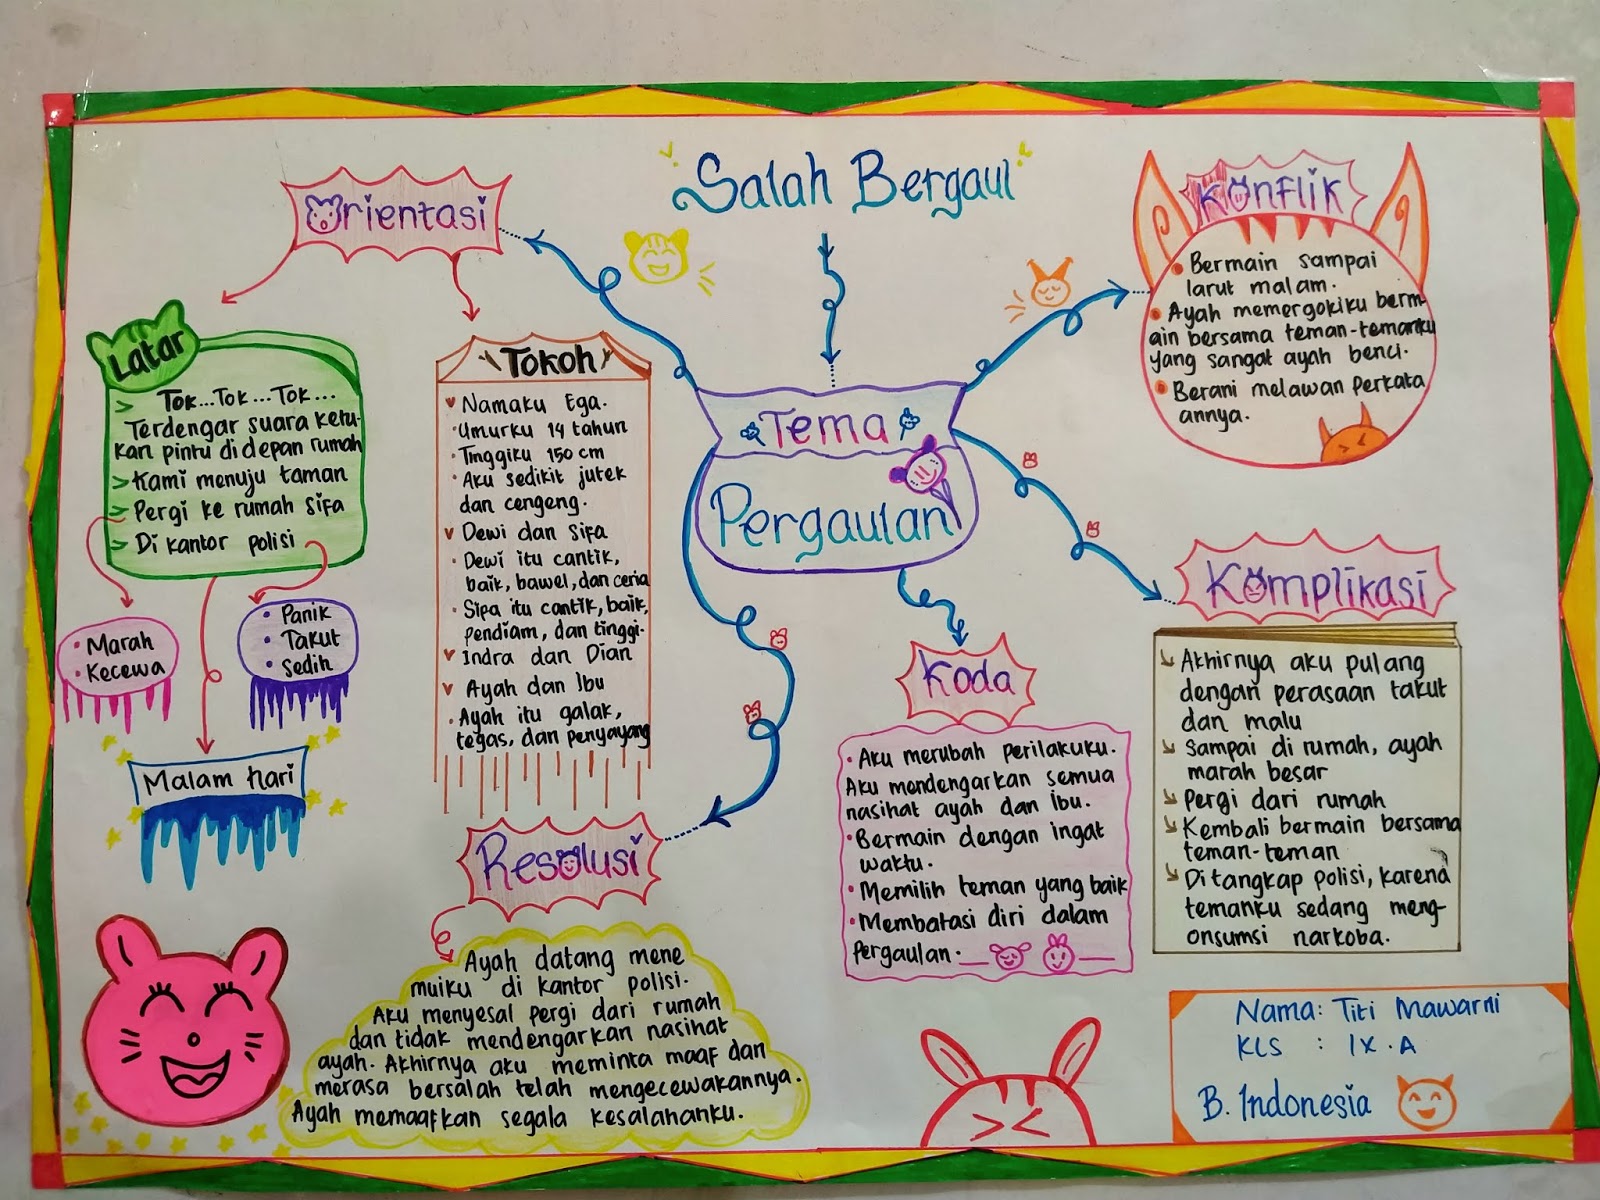 Salah Bergaul
Orientasi
Latar
> Tok...Tok...Tok...
Terdengar suara ketu-
kan pintu di depan rumah
> Kami menuju taman
> Pergi ke rumah Sifa
> Di kantor polisi
• Marah
• Kecewa
• Panik
• Takut
• Sedih
Malam hari
Tokoh
Namaku Ega.
• Umurku 14 tahun
• Tinggiku 150 cm
• Aku sedikit jutek
dan cengeng.
Dewi dan Sifa
• Dewi itu cantik,
baik, bawel, dan ceria
• Sipa itu cantik, baik,
pendiam, dan tinggi.
Indra dan Dian
Ayah dan Ibu
• Ayah itu galak,
tegas, dan penyayang
Tema
Pergaulan
Konflik
• Bermain sampai
larut malam.
• Ayah memergokiku berm-
ain bersama teman-temanku
yang sangat ayah benci.
• Berani melawan perkata
annya.
Komplikasi
Akhirnya aku pulang
dengan perasaan takut
dan malu
Sampai di rumah, ayah
marah besar
Pergi dari rumah
Kembali bermain bersama
teman-teman
Ditangkap polisi, karena
temanku sedang meng-
onsumsi narkoba.
Resolusi
Ayah datang mene
muiku di kantor polisi.
Aku menyesal pergi dari rumah
dan tidak mendengarkan nasihat
ayah. Akhirnya aku meminta maaf dan
merasa bersalah telah mengecewakannya.
Ayah memaafkan segala kesalahanku.
Koda
• Aku merubah perilakuku.
Aku mendengarkan semua
nasihat ayah dan ibu.
• Bermain dengan ingat
waktu.
• Memilih teman yang baik
• Membatasi diri dalam
pergaulan.
Nama: Titi Mawarni
KLS : IX.A
B. Indonesia